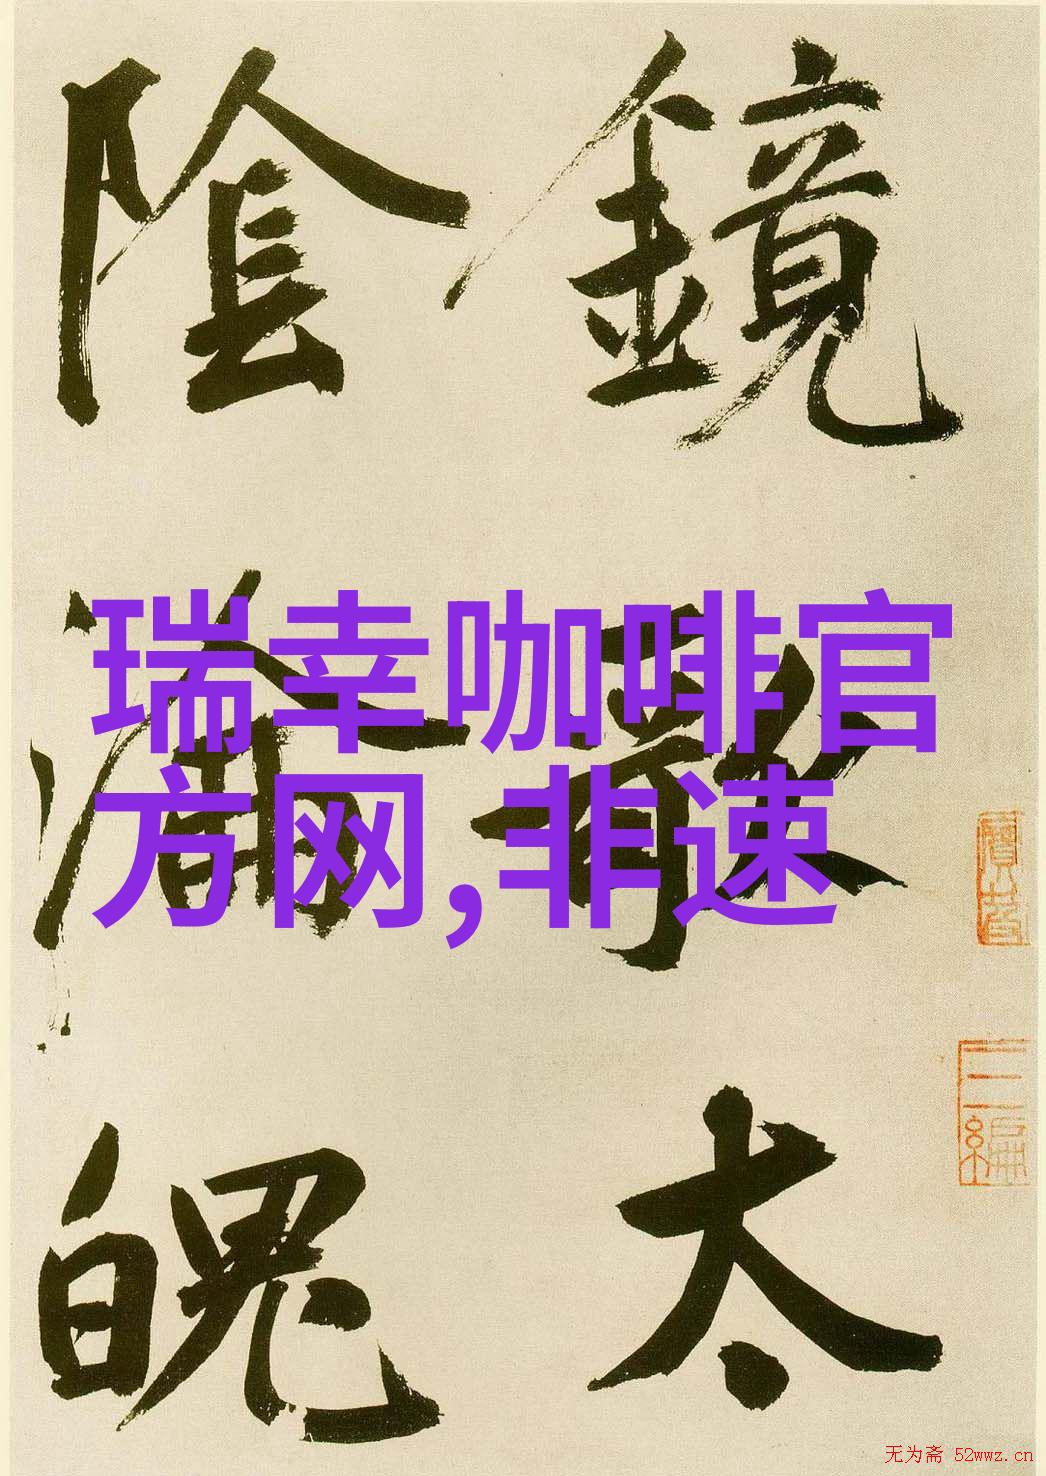 鏡
太
陰
淪
魄
瑞幸咖啡官
方网,非速
无为斋 52wwz.cn